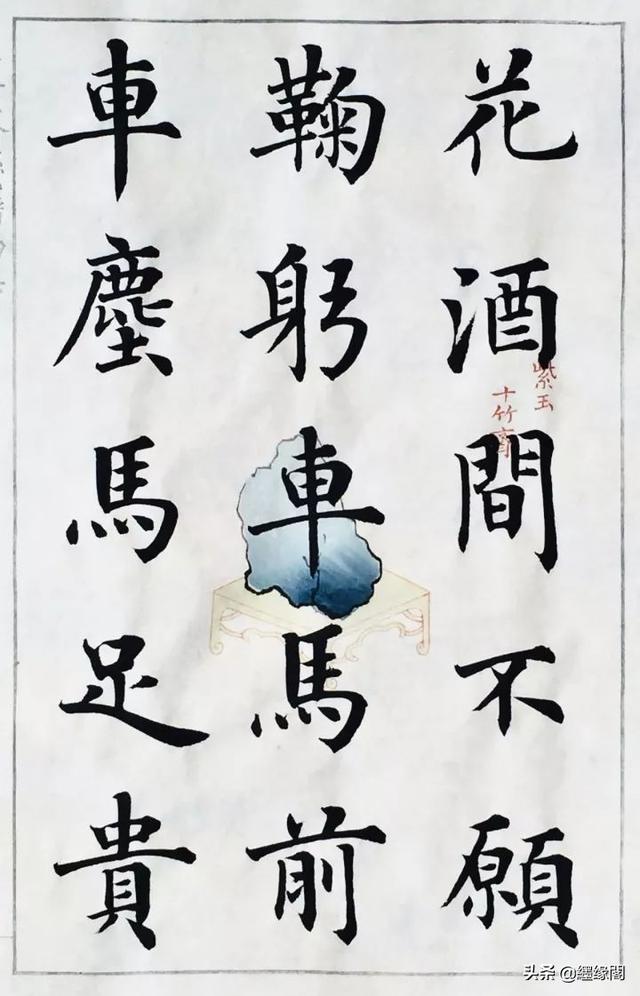 花酒間不願
鞠躬車馬前
車塵馬足貴
紫玉
十竹齋
头条 @纒缘閣